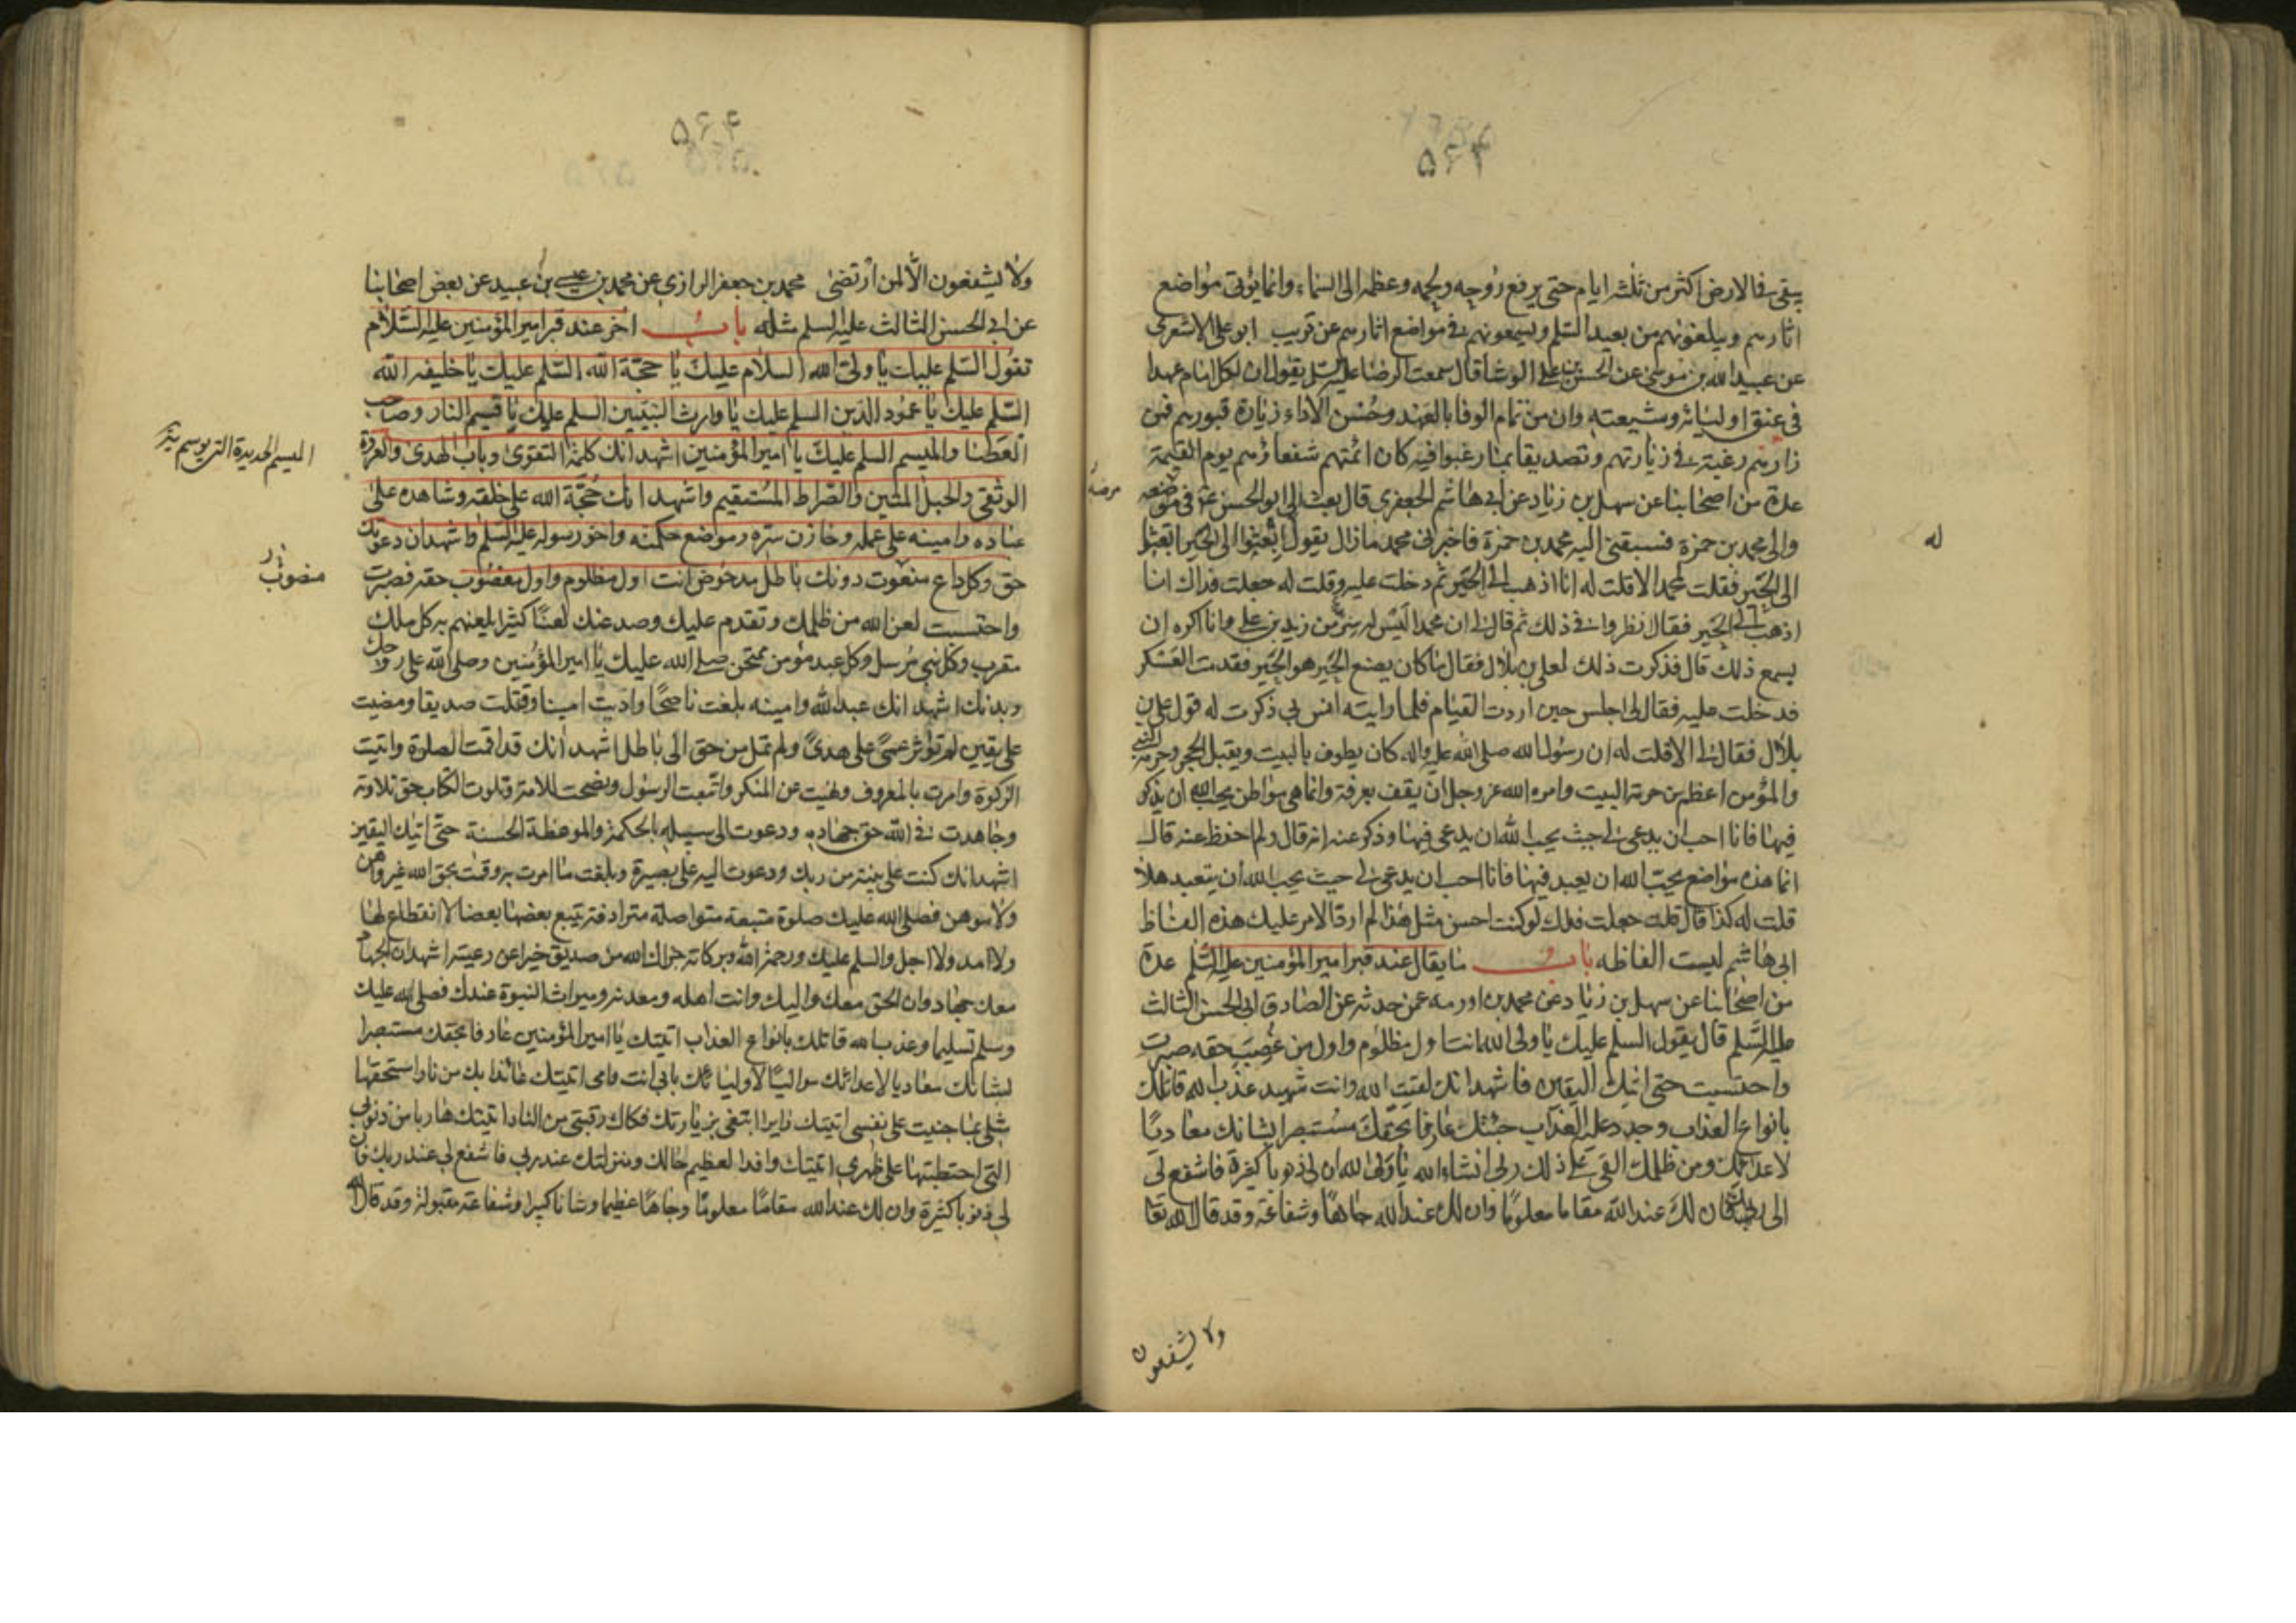 ۵۶۳
يبقى في الارض اكثر من ثلثة ايام حتى يرفع روحه ولحمه وعظمه الى السماء وانما يؤتى مواضع
اثارهم ويبلغونهم من بعيد السلم ويسمعونهم في مواضع اثارهم عن قريب ابو علي الاشعري
عن عبيد الله بن موسى عن الحسن بن علي الوشا قال سمعت الرضا عليه السلم يقول ان لكل امام عهدا
في عنق اوليائه وشيعته وان من تمام الوفا بالعهد وحسن الاداء زيارة قبورهم فمن
زارهم رغبة في زيارتهم وتصديقا بما رغبوا فيه كان ائمتهم شفعاؤهم يوم القيمة
عدة من اصحابنا عن سهل بن زياد عن ابي هاشم الجعفري قال بعث الي ابو الحسن ع في مرضه
والى محمد بن حمزة فسبقني اليه محمد بن حمزة فاخبرني محمد ما زال يقول ابعثوا الى الحير ابعثوا
الى الحير فقلت لمحمد الا قلت له انا اذهب الى الحير ثم دخلت عليه وقلت له جعلت فداك انا
اذهب الى الحير فقال انظروا في ذلك ثم قال لي ان محمدا ليس له سر من زيد بن علي وانا اكره ان
يسمع ذلك قال فذكرت ذلك لعلي بن بلال فقال ما كان يصنع الحير هو الحير فقدمت العسكر
فدخلت عليه فقال لي اجلس حين اردت القيام فلما رايته انس بي ذكرت له قول علي بن
بلال فقال لي الا قلت له ان رسول الله صلى الله عليه واله كان يطوف بالبيت ويقبل الحجر وحرمة النبي
والمؤمن اعظم من حرمة البيت وامره الله عز وجل ان يقف بعرفة وانما هي مواطن يحب الله ان يذكر
فيها فانا احب ان يدعى لي حيث يحب الله ان يدعى فيها وذكر عنه انه قال ولم احفظ عنه قال
انما هذه مواضع يحب الله ان يعبد فيها فانا احب ان يدعى لي حيث يحب الله ان يتعبد هلا
قلت له كذا قال قلت جعلت فداك لو كنت احسن مثل هذا لم ارد الامر عليك هذه الفاظ
ابي هاشم ليست الفاظه باب ما يقال عند قبر امير المؤمنين عليه السلم عدة
من اصحابنا عن سهل بن زياد عن محمد بن اورمه عمن حدثه عن الصادق ابي الحسن الثالث
عليه السلم قال يقول السلم عليك يا ولي الله انت اول مظلوم واول من غصب حقه صبرت
واحتسبت حتى اتيك اليقين فاشهد انك لقيت الله وانت شهيد عذب الله قاتلك
بانواع العذاب وجدد عليه العذاب جئتك عارفا بحقك مستبصرا بشانك معاديا
لاعدائك ومن ظلمك القى على ذلك ربي انشاء الله يا ولي الله ان لي ذنوبا كثيرة فاشفع لي
الى ربك فان لك عند الله مقاما معلوما وان لك عند الله جاها وشفاعة وقد قال الله تعا
له
ولا يشفعون
۵۶۴
ولا يشفعون الا لمن ارتضى محمد بن جعفر الرازي عن محمد بن عيسى بن عبيد عن بعض اصحابنا
عن ابي الحسن الثالث عليه السلم مثله باب اخر عند قبر امير المؤمنين عليه السلام
تقول السلم عليك يا ولي الله السلام عليك يا حجة الله السلم عليك يا خليفة الله
السلم عليك يا عمود الدين السلم عليك يا وارث النبيين السلم عليك يا قسيم النار وصاحب
العصا والميسم السلم عليك يا امير المؤمنين اشهد انك كلمة التقوى وباب الهدى والعروة
الوثقى والحبل المتين والصراط المستقيم واشهد انك حجة الله على خلقه وشاهده على
عباده وامينه على علمه وخازن سره وموضع حكمته واخو رسوله عليه السلم واشهد ان دعوتك
حق وكل داع منعوت دونك باطل مدحوض انت اول مظلوم واول مغصوب حقه فصبرت
واحتسبت لعن الله من ظلمك وتقدم عليك وصد عنك لعنا كثيرا يلعنهم به كل ملك
مقرب وكل نبي مرسل وكل عبد مؤمن ممتحن صلى الله عليك يا امير المؤمنين وصلى الله على روحك
وبدنك اشهد انك عبد الله وامينه بلغت ناصحا واديت امينا وقتلت صديقا ومضيت
على يقين لم تؤثر عمى على هدى ولم تمل من حق الى باطل اشهد انك قد اقمت الصلوة واتيت
الزكوة وامرت بالمعروف ونهيت عن المنكر واتبعت الرسول ونصحت للامة وتلوت الكتاب حق تلاوته
وجاهدت في الله حق جهاده ودعوت الى سبيله بالحكمة والموعظة الحسنة حتى اتيك اليقين
اشهد انك كنت على بينة من ربك ودعوت اليه على بصيرة وبلغت ما امرت به وقمت بحق الله غير واهن
ولا موهن فصلى الله عليك صلوة متبعة متواصلة مترادفة يتبع بعضها بعضا لا انقطاع لها
ولا امد ولا اجل والسلم عليك ورحمة الله وبركاته جزاك الله من صديق خيرا عن رعيته اشهد ان الجهاد
معك جهاد وان الحق معك واليك وانت اهله ومعدنه وميراث النبوة عندك فصلى الله عليك
وسلم تسليما وعذب الله قاتلك بانواع العذاب اتيتك يا امير المؤمنين عارفا بحقك مستبصرا
بشانك معاديا لاعدائك مواليا لاوليائك بابي انت وامي اتيتك عائذا بك من نار استحقها
مثلي بما جنيت على نفسي اتيتك زايرا ابتغي بزيارتك فكاك رقبتي من النار اتيتك هاربا من ذنوبي
التي احتطبتها على ظهري اتيتك وافدا لعظيم حالك ومنزلتك عند ربي فاشفع لي عند ربك فان
لي ذنوبا كثيرة وان لك عند الله مقاما معلوما وجاها عظيما وشانا كبيرا وشفاعة مقبولة وقد قال الله
الميسم الحديدة التي يوسم بها